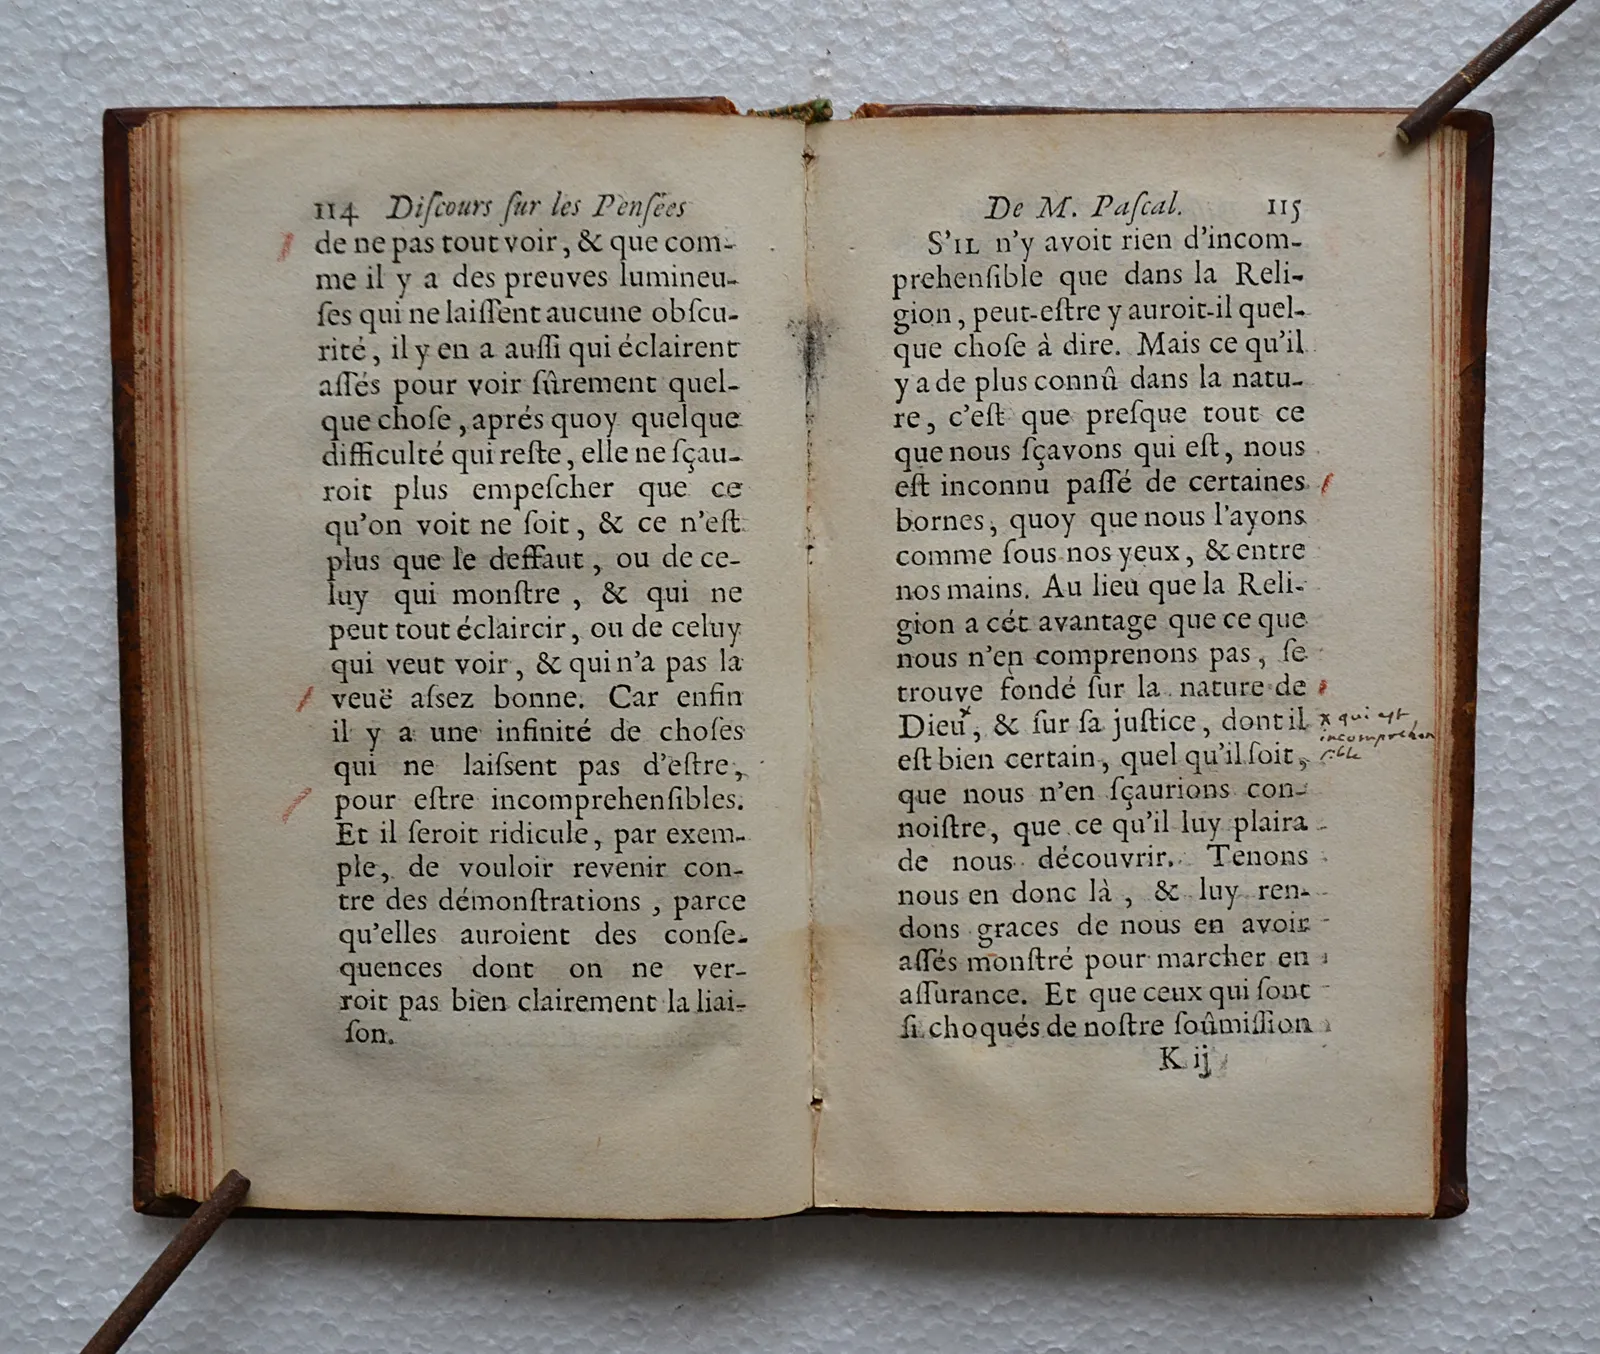 114 Diſcours ſur les Penſées
de ne pas tout voir, & que com-
me il y a des preuves lumineu-
ſes qui ne laiſſent aucune obſcu-
rité, il y en a auſſi qui éclairent
aſſés pour voir ſûrement quel-
que choſe, aprés quoy quelque
difficulté qui reſte, elle ne ſçau-
roit plus empeſcher que ce
qu'on voit ne ſoit, & ce n'eſt
plus que le deffaut, ou de ce-
luy qui monſtre, & qui ne
peut tout éclaircir, ou de celuy
qui veut voir, & qui n'a pas la
veuë aſsez bonne. Car enfin
il y a une infinité de choſes
qui ne laiſsent pas d'eſtre,
pour eſtre incomprehenſibles.
Et il ſeroit ridicule, par exem-
ple, de vouloir revenir con-
tre des démonſtrations, parce
qu'elles auroient des conſe-
quences dont on ne ver-
roit pas bien clairement la liai-
ſon.
De M. Paſcal. 115
S'IL n'y avoit rien d'incom-
prehenſible que dans la Reli-
gion, peut-eſtre y auroit-il quel-
que choſe à dire. Mais ce qu'il
y a de plus connû dans la natu-
re, c'eſt que preſque tout ce
que nous ſçavons qui eſt, nous
eſt inconnu paſſé de certaines
bornes, quoy que nous l'ayons
comme ſous nos yeux, & entre
nos mains. Au lieu que la Reli-
gion a cét avantage que ce que
nous n'en comprenons pas, ſe
trouve fondé ſur la nature de
Dieu x, & ſur ſa juſtice, dont il
eſt bien certain, quel qu'il ſoit,
que nous n'en ſçaurions con-
noiſtre, que ce qu'il luy plaira
de nous découvrir. Tenons
nous en donc là, & luy ren-
dons graces de nous en avoir
aſſés monſtré pour marcher en
aſſurance. Et que ceux qui ſont
ſi choqués de noſtre ſoûmiſſion
K ij
x qui est
incomprehen
sible